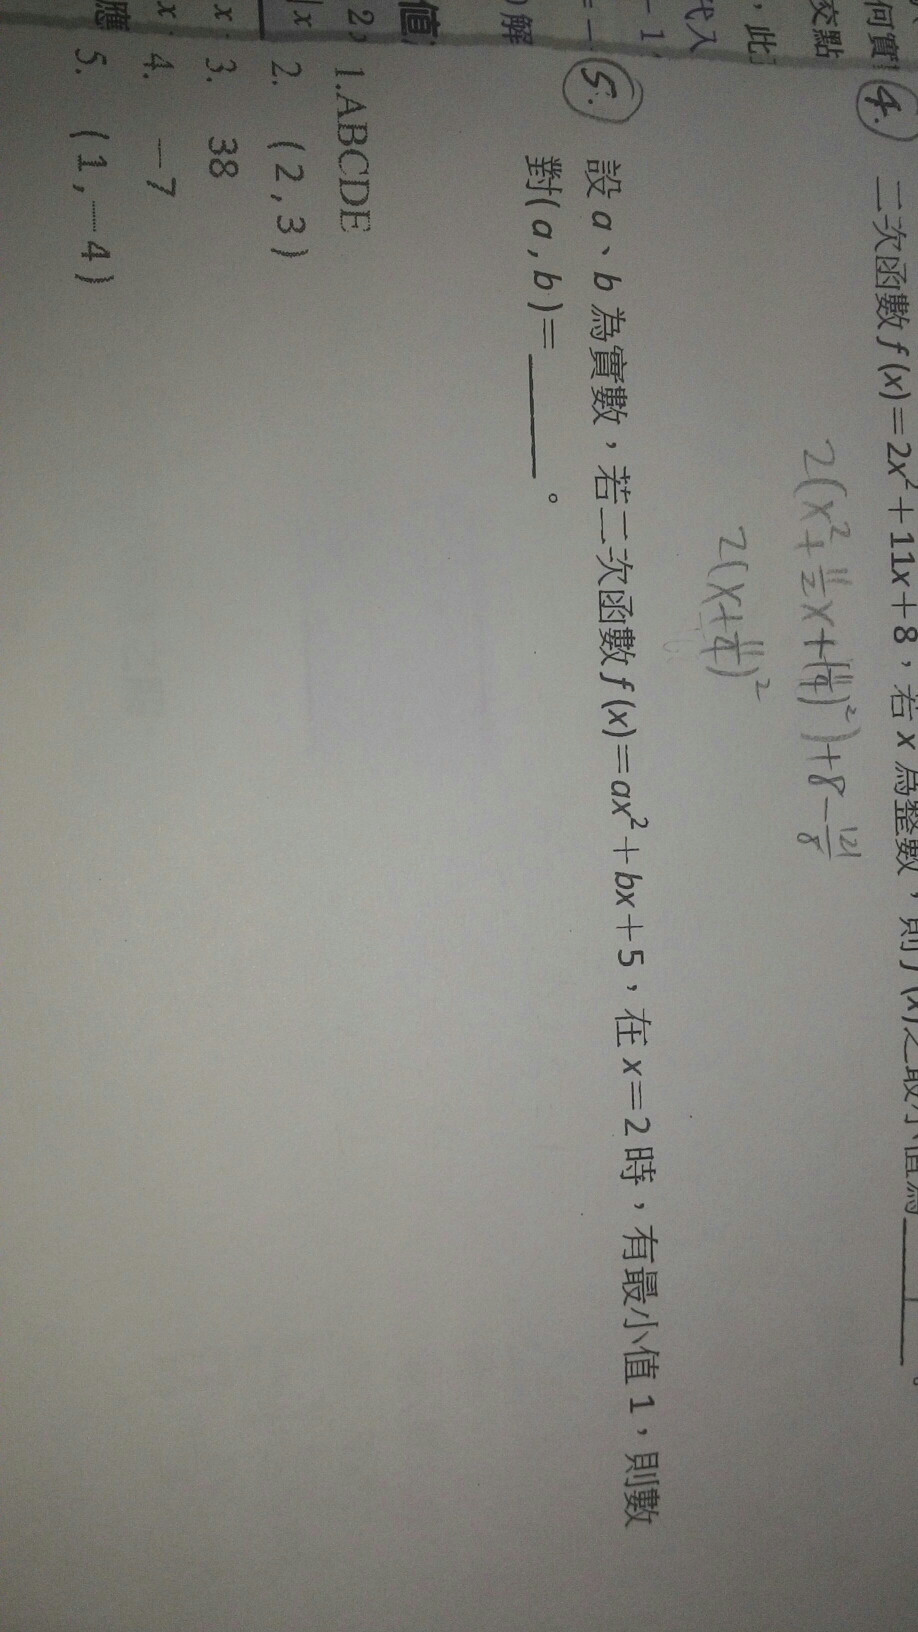 何實
交點
，此
代入
－1
＝－
解
值
2，
x
x
x
應
4. 二次函數 f(x)＝2x²＋11x＋8，若 x 為整數，則 f(x)之最小值為______。
2(x²+11/2x+(11/4)²)+8-121/8
2(x+11/4)²
5. 設 a、b 為實數，若二次函數 f(x)＝ax²＋bx＋5，在 x＝2 時，有最小值 1，則數
對(a,b)＝______。
1.ABCDE
2. (2,3)
3. 38
4. －7
5. (1,－4)